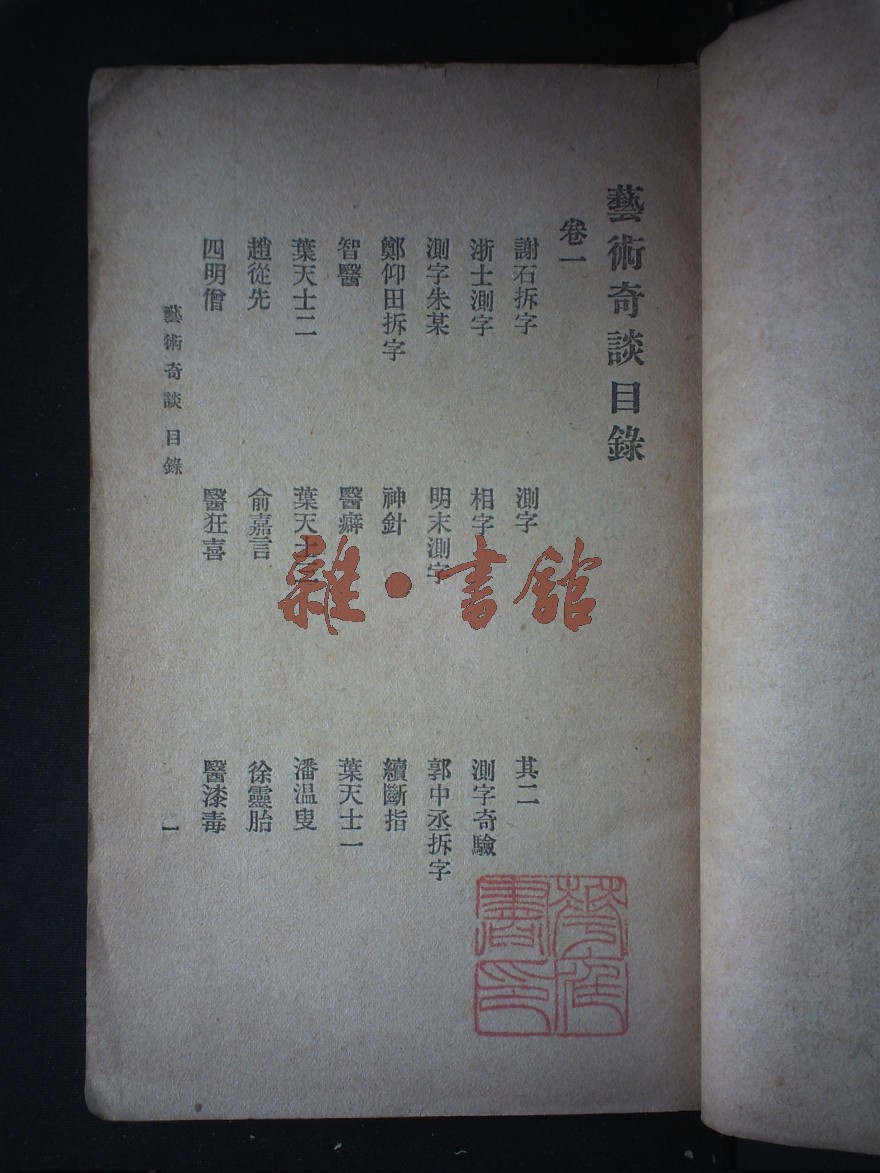 藝術奇談目錄
卷一
謝石拆字 測字 其二
浙士測字 相字 測字奇驗
測字朱某 明末測字 郭中丞拆字
鄭仰田拆字 神針 續斷指
智醫 醫癖 葉天士一
葉天士二 葉天士三 潘温叟
趙從先 俞嘉言 徐靈胎
四明僧 醫狂喜 醫漆毒
藝術奇談 目錄 一
雜·書館